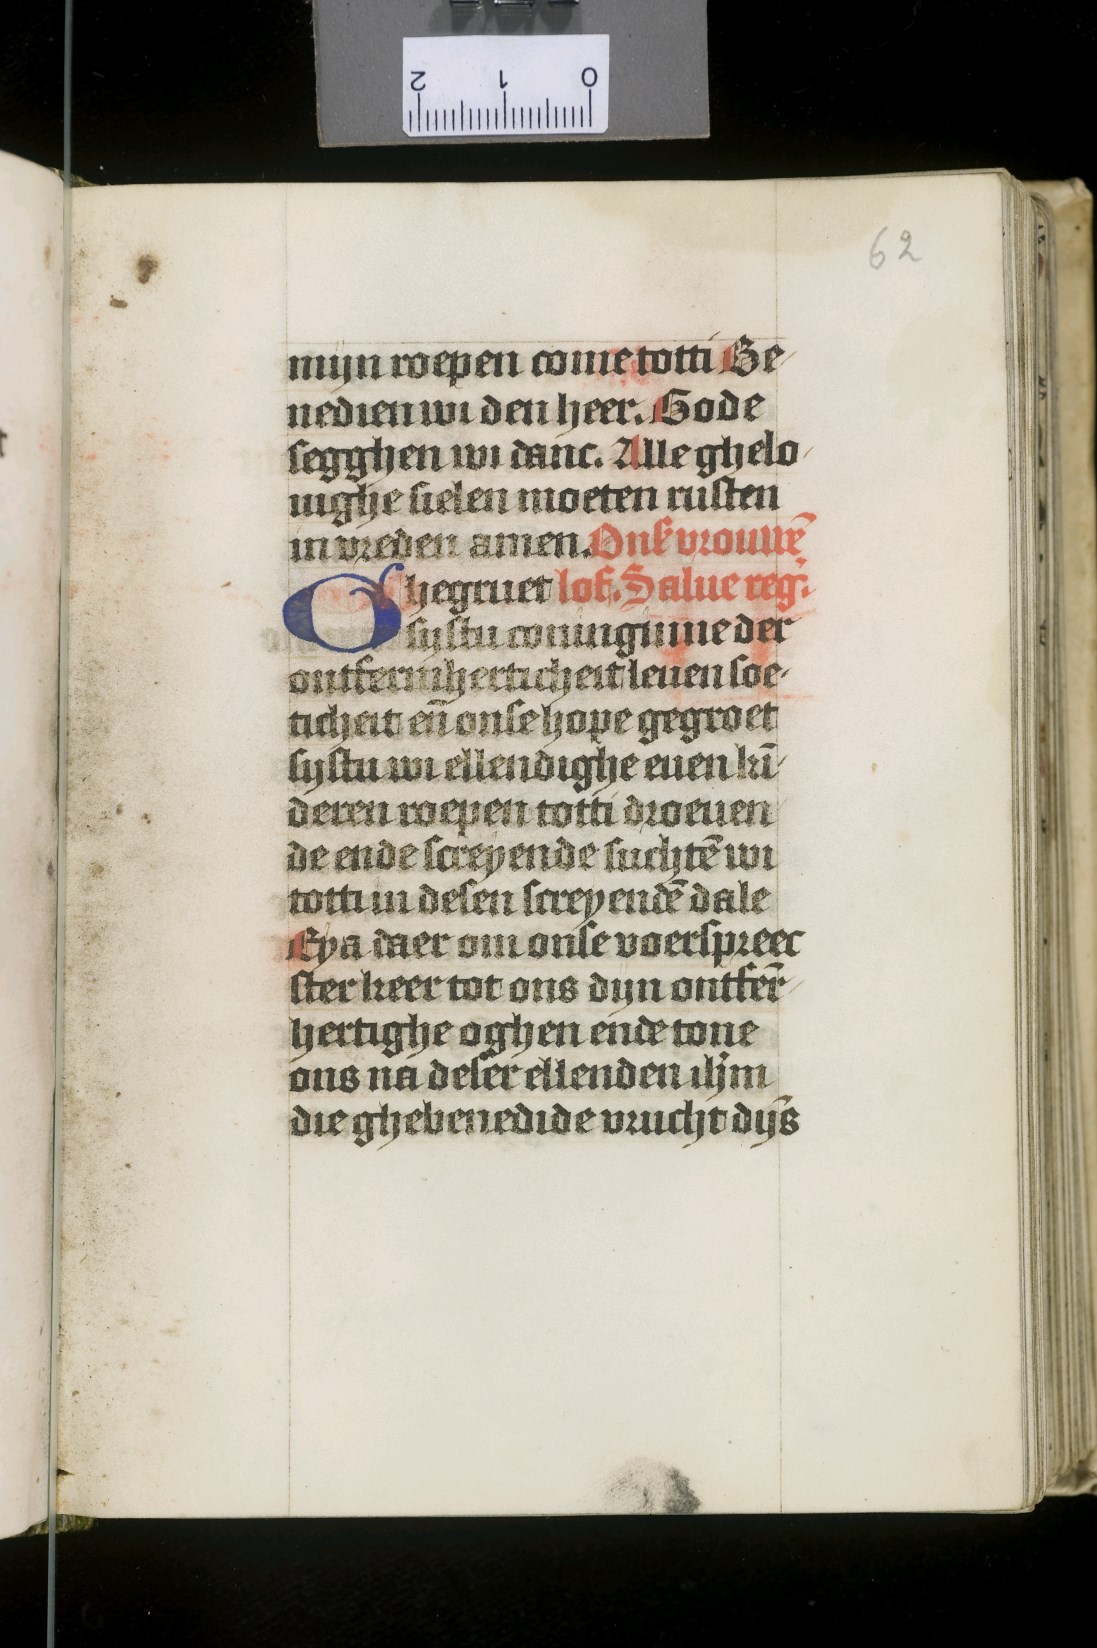 2 1 0
62
mijn roepen come totti Be
nedien wi den heer. Gode
segghen wi danc. Alle ghelo
uighe sielen moeten rusten
in vreden amen. Onſ vrouwē
Ghegruet lof. Salue reg.
systu coninginne der
ontfermherticheit leuen soe
ticheit eñ onse hope gegroet
systu wi ellendighe euen kī
deren roepen totti droeuen
de ende screyende suchtē wi
totti in desen screyendē dale
Eya daer om onse voerspreec
ster keer tot ons dijn ontfer̄
hertighe oghen ende tone
ons na deser ellenden ihm
die ghebenedide vrucht dijs